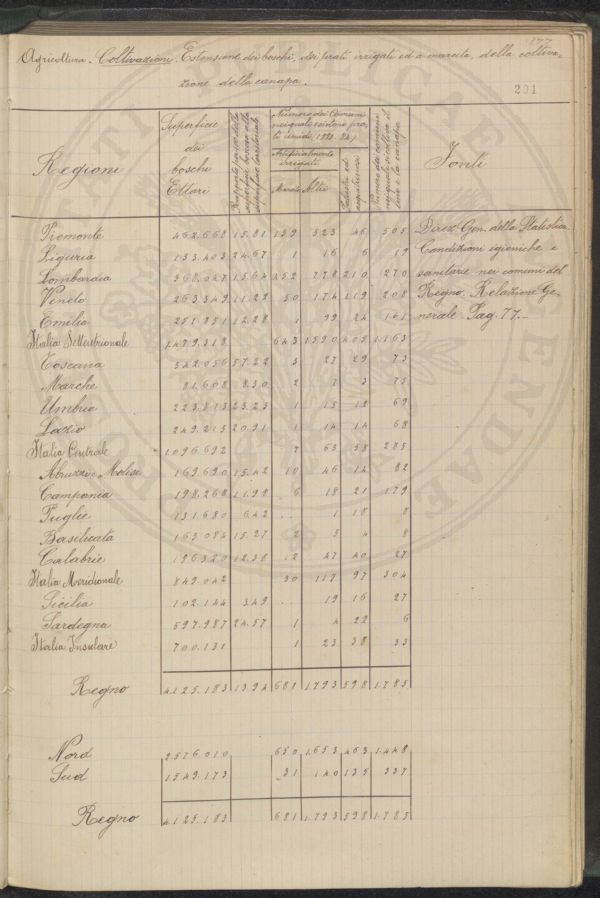 177
Agricoltura. Coltivazioni. Estensione dei boschi, dei prati irrigati ed a marcita, della coltiva-
zione della canapa.
201
Regioni
Superficie dei boschi Ettari
Rapporto % della superficie boscosa alla superficie territoriale
Numero dei Comuni nei quali esistono prati umidi,
Artificialmente irrigati
Marcite Altri
Palustri ed acquitrinosi
Numero dei comuni nei quali si coltiva il lino e la canapa
Fonti
Piemonte 462.668 15.81 139 523 46 505 Direz. Gen. della Statistica.
Liguria 133.403 24.67 1 16 6 19 Condizioni igieniche e
Lombardia 368.047 15.64 452 778 210 270 sanitarie nei comuni del
Veneto 263.349 11.22 50 174 119 208 Regno. Relazione Ge-
Emilia 251.851 12.28 1 99 24 161 nerale. Pag. 77.
Italia Settentrionale 1.479.318 643 1590 405 1.163
Toscana 542.056 57.22 3 27 29 73
Marche 81.608 8.30 2 7 3 75
Umbria 223.813 23.23 1 15 12 69
Lazio 249.215 20.91 1 14 14 68
Italia Centrale 1.096.692 7 63 58 285
Abruzzi e Molise 169.690 15.42 10 46 14 82
Campania 198.268 11.98 6 18 21 179
Puglie 131.680 6.42 ... 1 18 8
Basilicata 163.084 15.27 2 8 4 8
Calabrie 186.320 12.36 12 47 40 27
Italia Meridionale 849.042 30 117 97 304
Sicilia 102.144 3.49 ... 19 16 27
Sardegna 597.987 24.57 1 4 22 6
Italia Insulare 700.131 1 23 38 33
Regno 4.125.183 13.94 681 1.793 598 1.785
Nord 2576.010 650 1.653 463 1.448
Sud 1.549.173 31 140 135 337
Regno 4.125.183 681 1.793 598 1.785